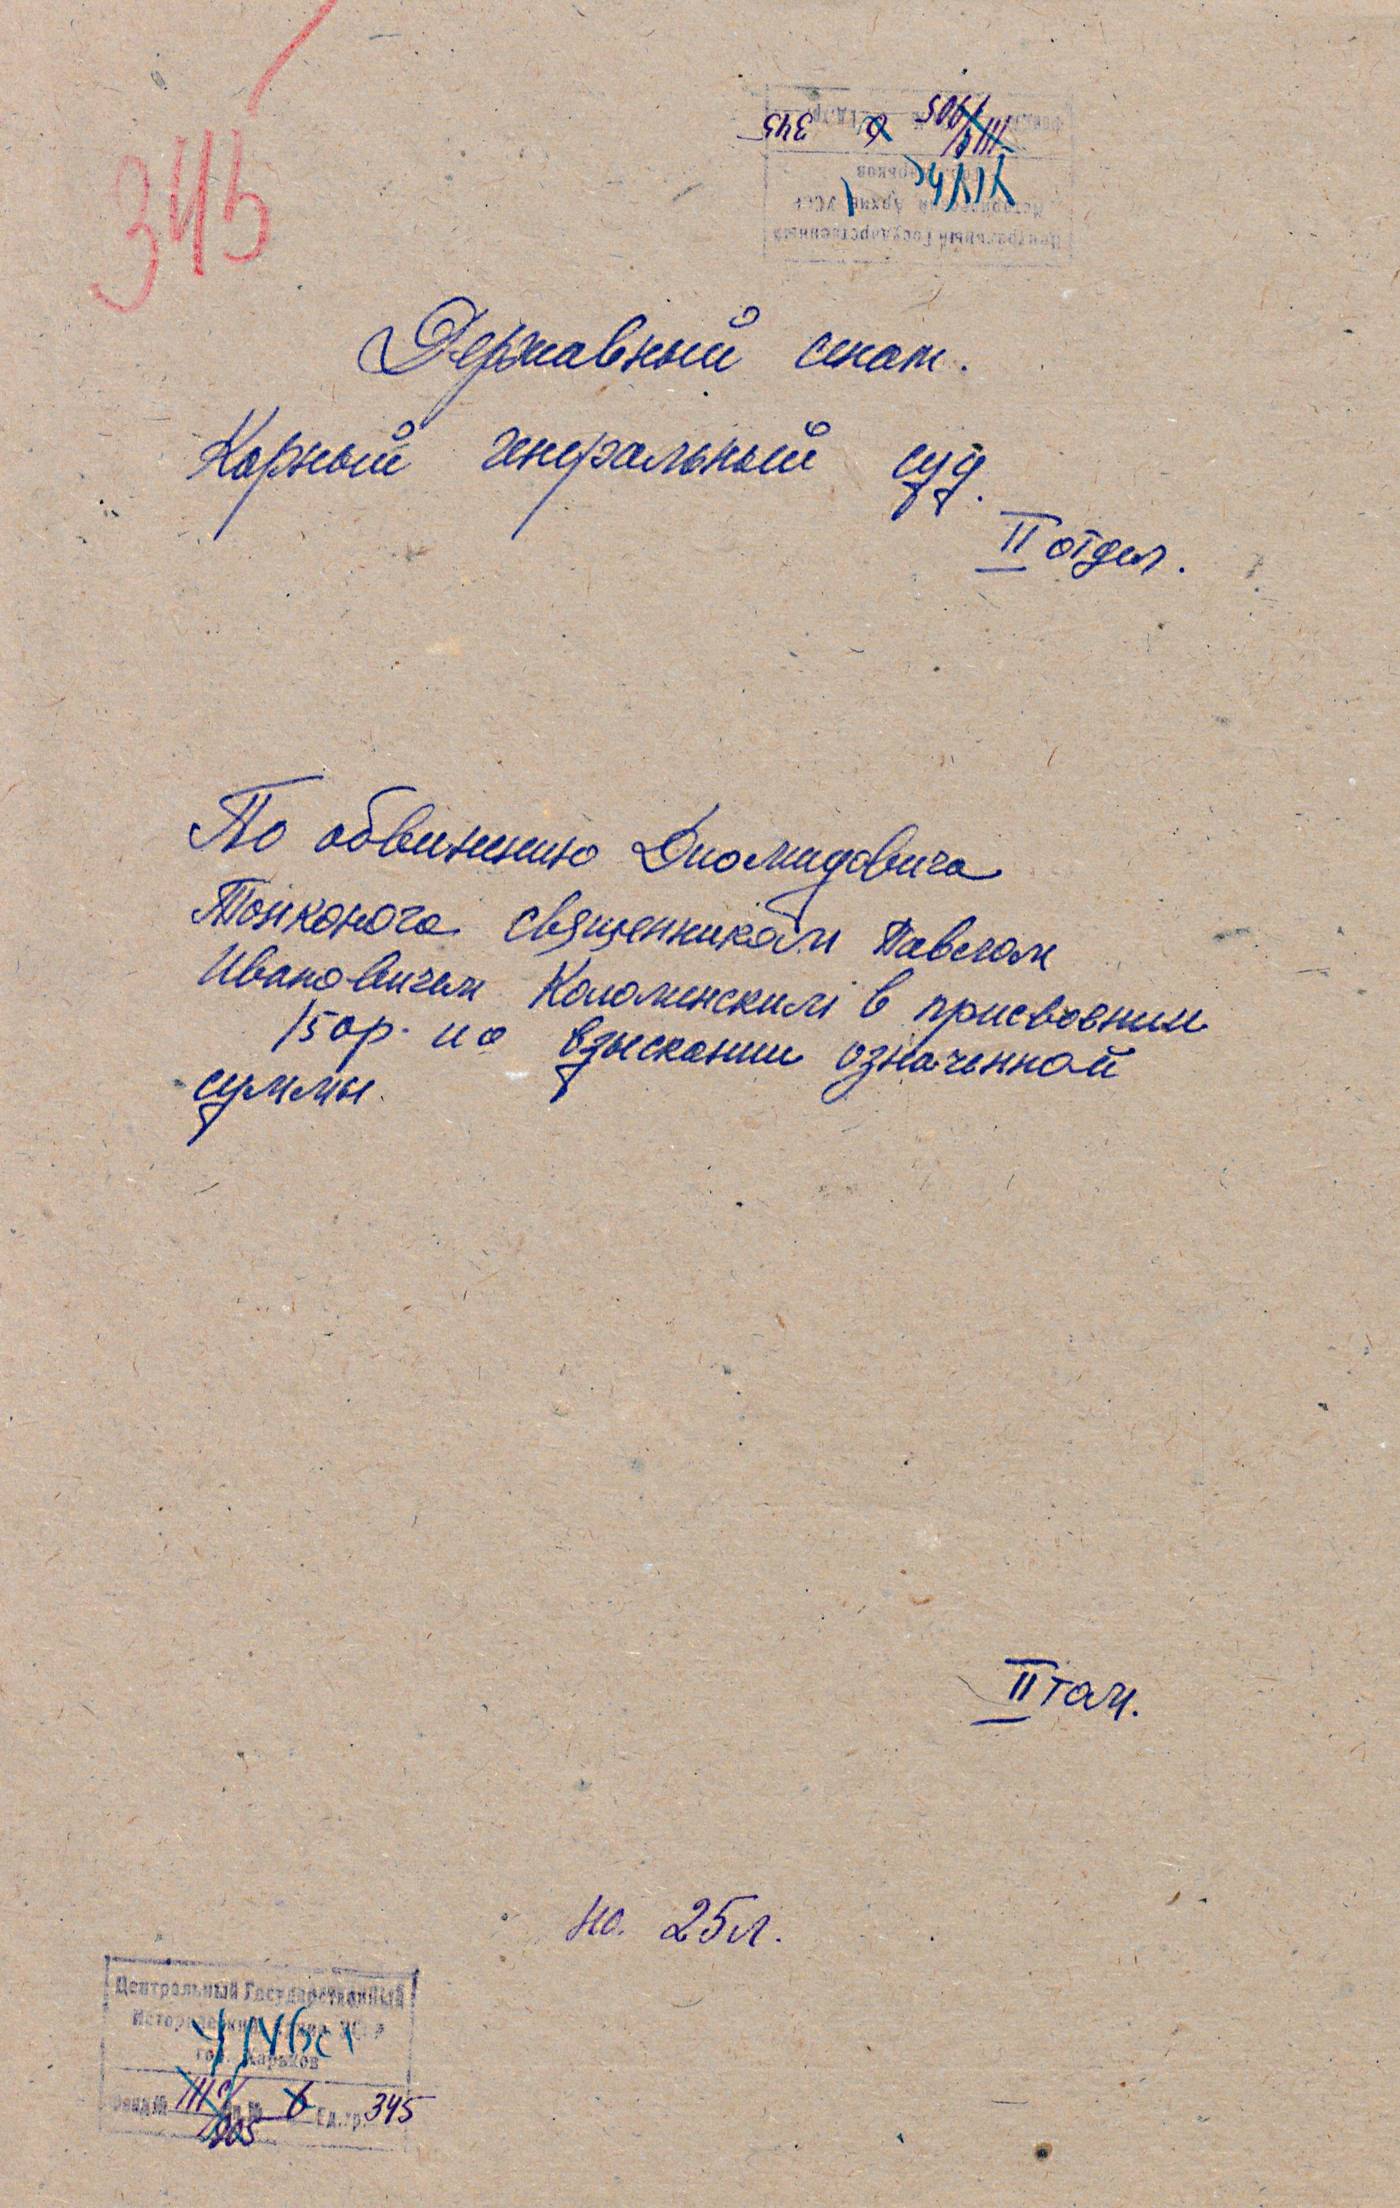 345
345
Центральный Государственный
Державный сенат.
Карный генеральный суд.
II отдел.
По обвинению Диомидовича
Тонконога священником Павлом
Ивановичем Коломенским в присвоении
150р. и о взыскании означенной
суммы.
II том.
на. 25л.
Центральный Государственный
Исторический Архив УССР
гор. Харьков
Фонд № III 905 оп. № 6 Ед. хр. 345